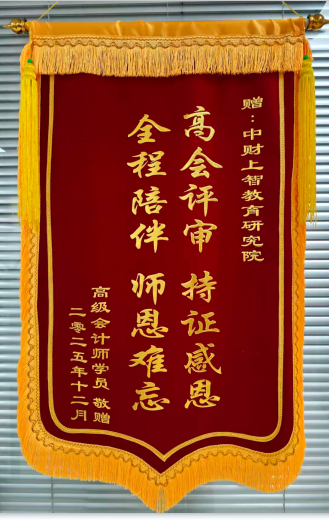 赠：中财上智教育研究院
高会评审 持证感恩
全程陪伴 师恩难忘
高级会计师学员 敬赠
二零二五年十二月